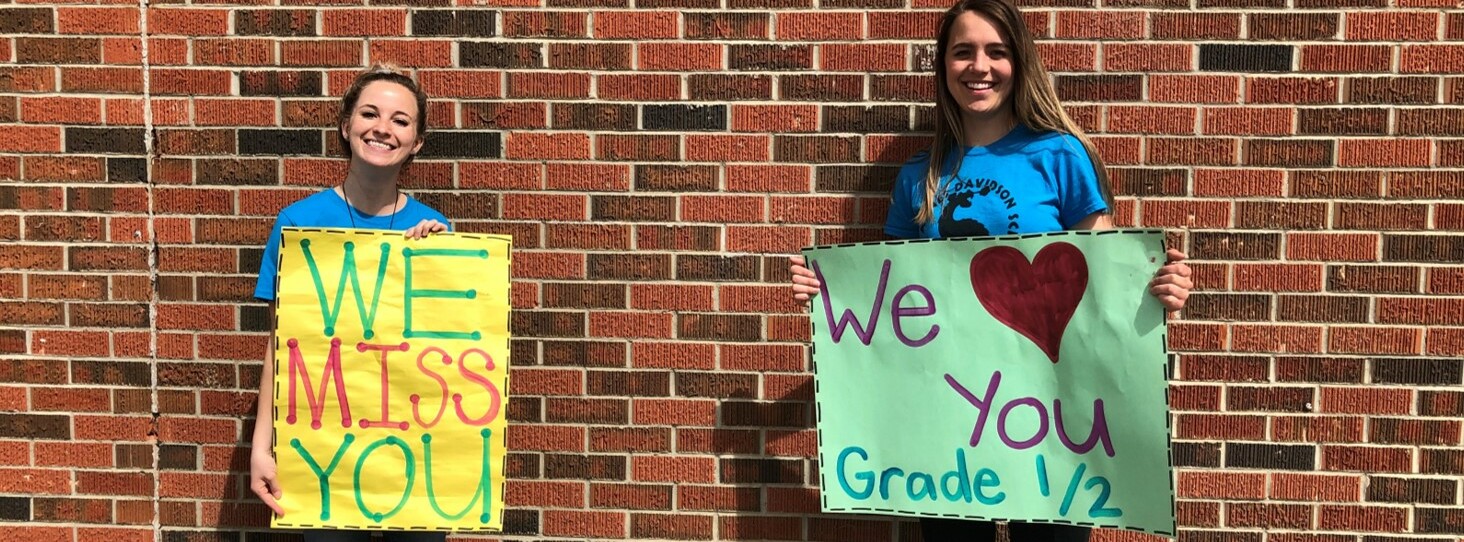 WE
MISS
YOU
DAVIDSON
We ❤
You
Grade 1/2